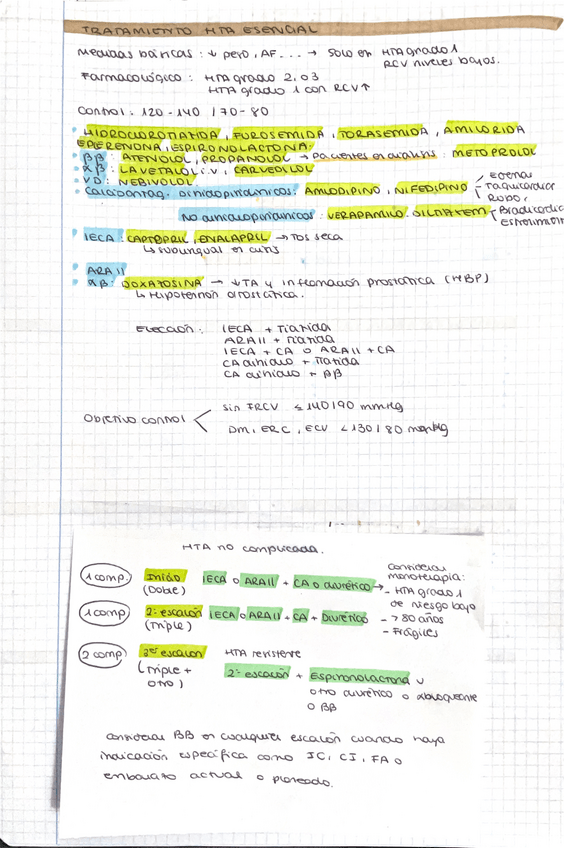 TRATAMIENTO HTA ESENCIAL
Medidas básicas: ↓ peso, AF... → Solo en HTA grado 1
RCV niveles bajos.
Farmacológico: HTA grado 2,03
HTA grado 1 con RCV↑
Control: 120-140 / 70-80
HIDROCLOROTIAZIDA, FUROSEMIDA, TORASEMIDA, AMILORIDA
EPERENONA, ESPIRONOLACTONA.
ββ: ATENOLOL, PROPANOLOL → Pacientes en diálisis: METOPROLOL
αβ: LAVETALOL i.v, CARVEDILOL
VD: NEBIVOLOL
Calcioantag. dihidropiridínicos: AMLODIPINO, NIFEDIPINO - Edema
- Taquicardia
Rubor,
No dihidropiridínicos: VERAPAMILO. DILTIAZEM - Bradicardia
Estreñimient
IECA: CAPTOPRIL, ENALAPRIL → Tos seca
↳ sublingual en crisis
ARA II
αβ: DOXAZOSINA → ↓TA y inflamación prostática (HBP)
↳ Hipotensión ortostática.
Elección: IECA + Tiazida
ARAII + Tiazida
IECA + CA o ARAII + CA
CA dihidro + Tiazida
CA dihidro + ββ
Objetivo control < sin FRCV ≤ 140/90 mmHg
DM, ERC, ECV < 130/80 mmHg
HTA no complicada.
1 comp. Inicio (Doble) IECA o ARAII + CA o diurético → Considerar monoterapia:
- HTA grado 1 de riesgo bajo
- >80 años
- Frágiles
1 comp 2º escalón (Triple) IECA o ARAII + CA + Diurético
2 comp 3er escalón (Triple + otro) HTA resistente
2º escalón + Espironolactona u
otro diurético o αbloqueante
o BB
considerar BB en cualquier escalón cuando haya
indicación específica como IC, CI, FA o
embarazo actual o planeado.